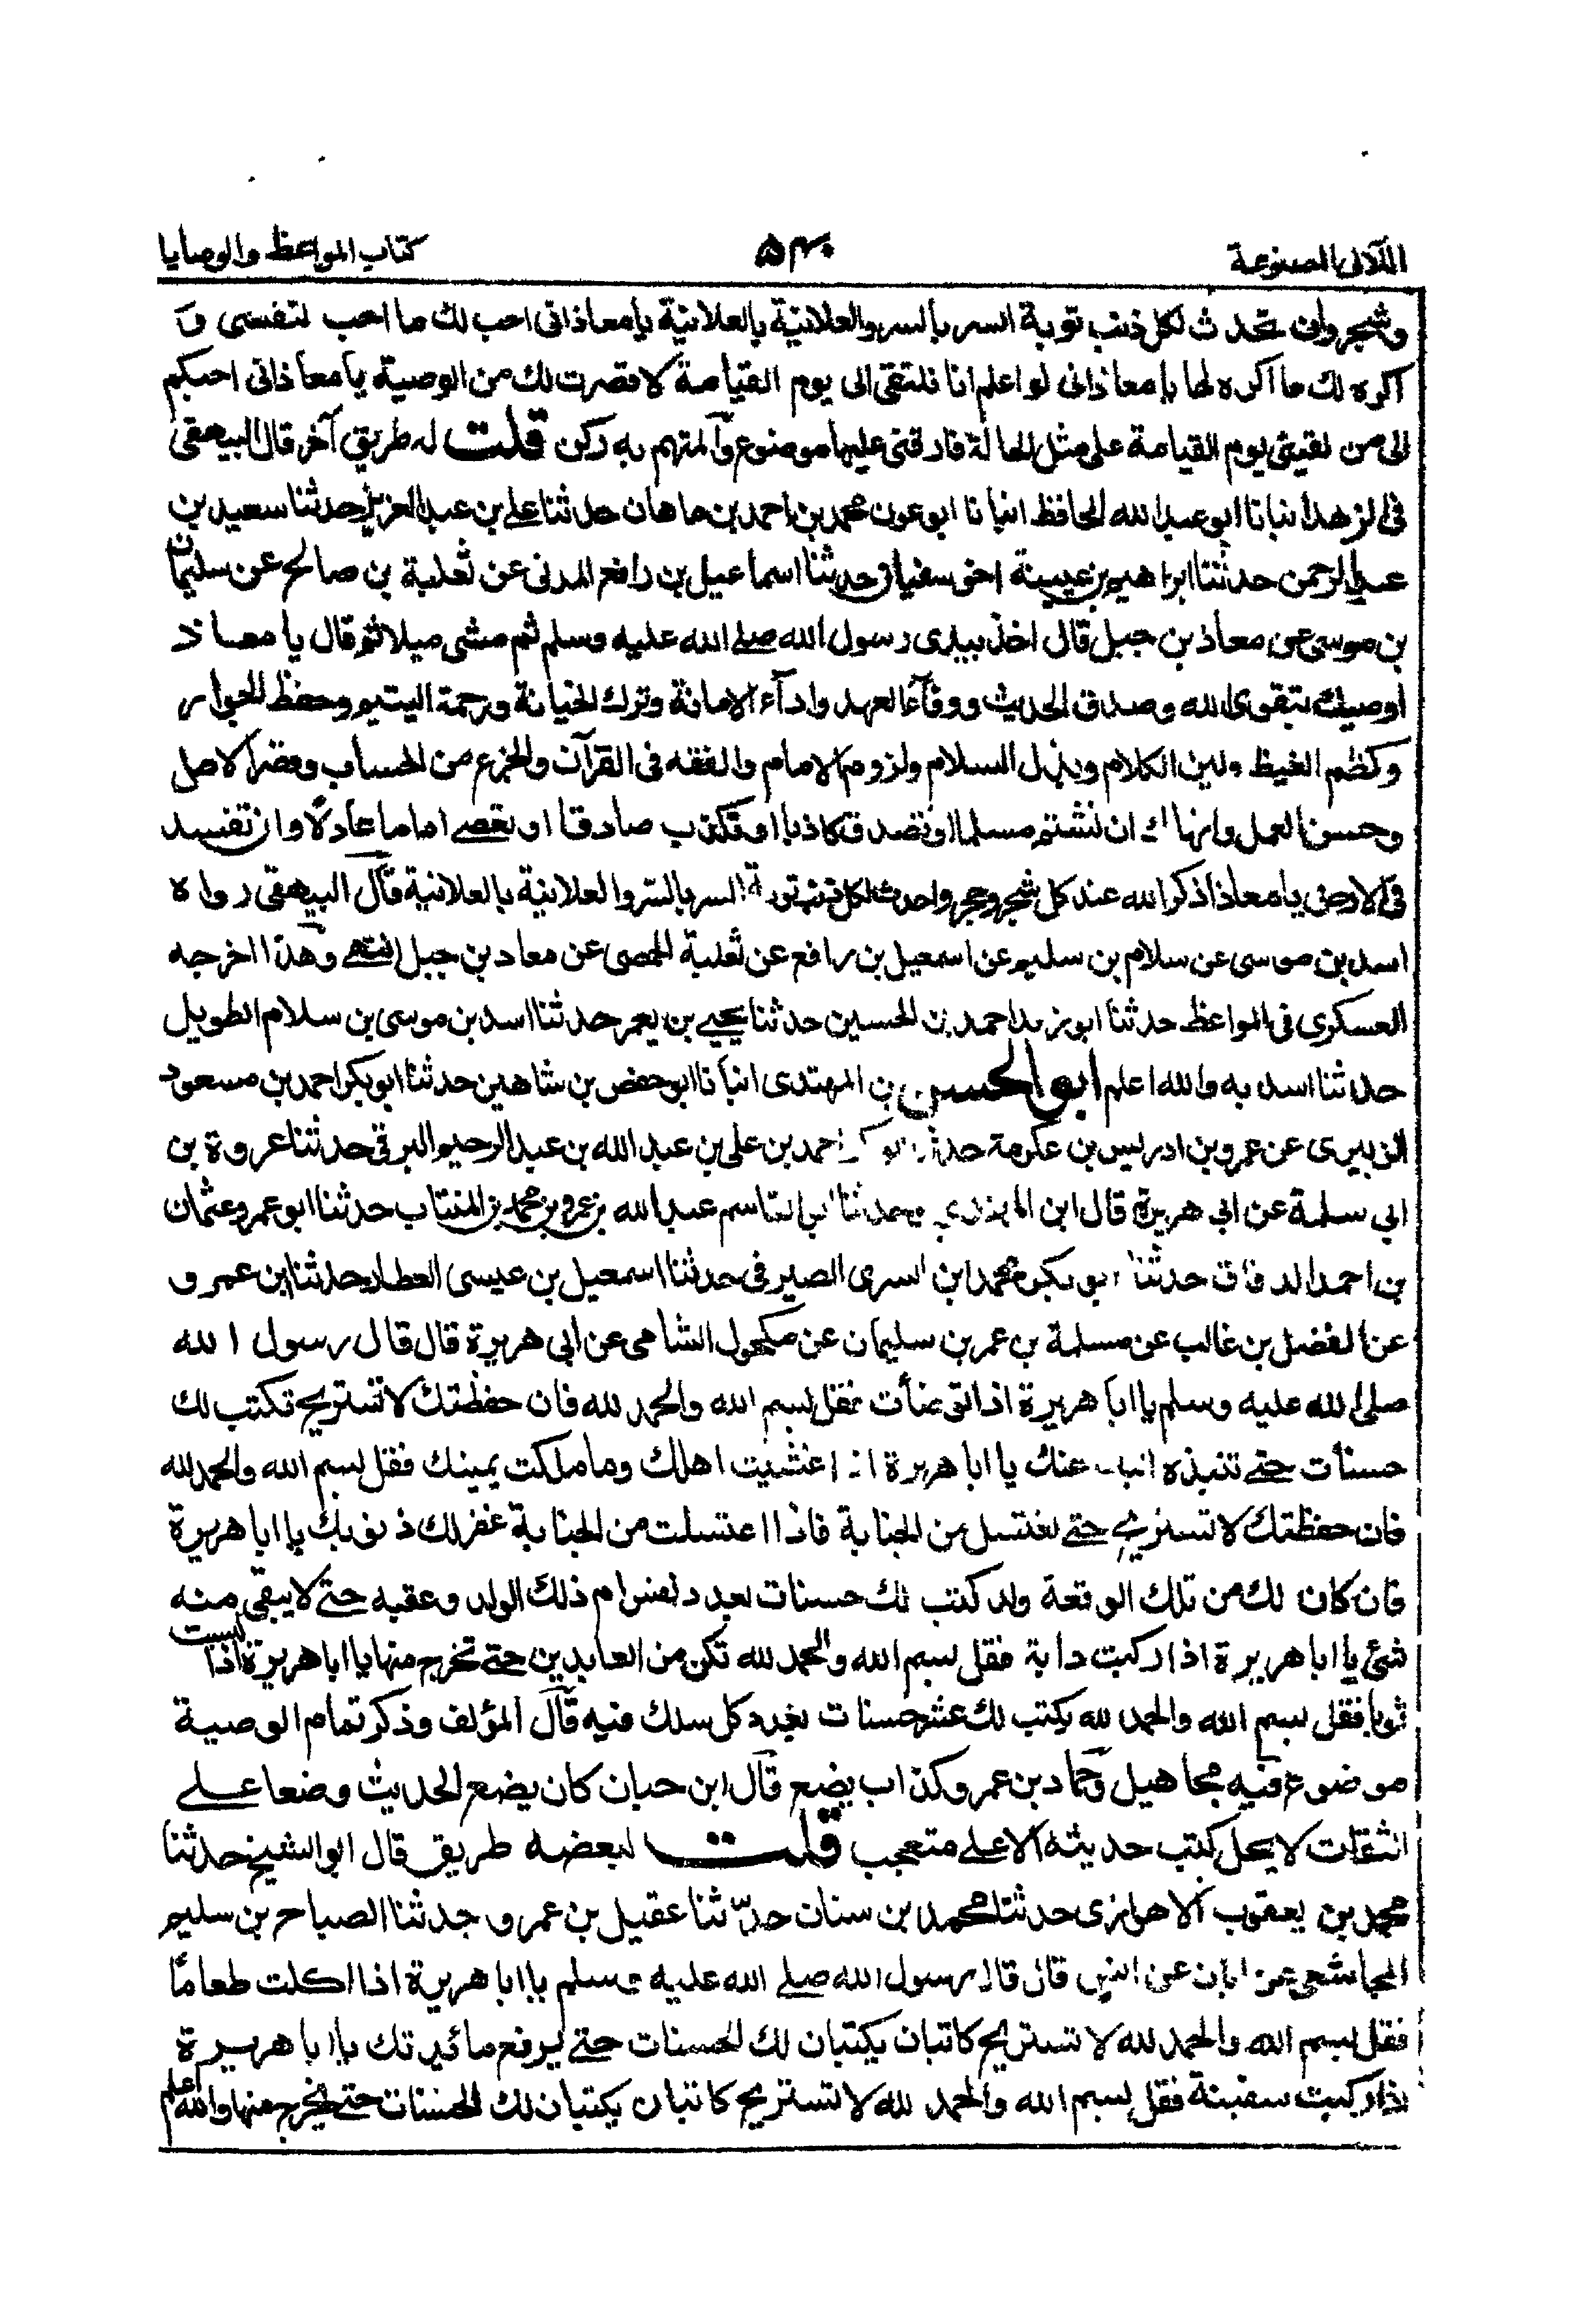 اللآلى المصنوعة ٥٤٠ كتاب المواعظ والوصايا
وشجر وان تحدث لكل ذنب توبة السر بالسر والعلانية بالعلانية يا معاذ انى احب لك ما احب لنفسى و
اكره لك ما اكره لها يا معاذ انى لو اعلم انا نلتقى الى يوم القيامة لاقصرت لك من الوصية يا معاذ انى احبكم
الى من لقينى يوم القيامة على مثل الحالة فارقنى عليها موضوع والمتهم به ركن قلت له طريق آخر قال البيهقى
فى الزهد انبانا ابو عبد الله الحافظ انبانا ابو عون محمد بن احمد بن ماهان حدثنا على بن عبد العزيز حدثنا سعيد بن
عبد الرحمن حدثنا ابراهيم بن عيينة اخو سفيان حدثنا اسماعيل بن رافع المدنى عن ثعلبة بن صالح عن سليمان
بن موسى عن معاذ بن جبل قال اخذ بيدى رسول الله صلے الله عليه وسلم ثم مشى ميلا ثم قال يا معاذ
اوصيك بتقوى الله وصدق الحديث ووفآء العهد وادآء الامانة وترك الخيانة ورحمة اليتيم وحفظ الجوار
وكظم الغيظ ولين الكلام وبذل السلام ولزوم الامام والفقه فى القرآن والجزع من الحساب وقصر الامل
وحسن العمل وانهاك ان تشتم مسلما او تصدق كاذبا او تكذب صادقا او تعصے اماما عادلا وان تفسد
فى الارض يا معاذ اذكر الله عند كل شجر وحجر واحدث لكل ذنب توبة السر بالسر والعلانية بالعلانية قال البيهقى رواه
اسد بن موسى عن سلام بن سليم عن اسمعيل بن رافع عن ثعلبة الحمصى عن معاذ بن جبل انتهے وهذا اخرجه
العسكرى فى المواعظ حدثنا ابو زيد احمد بن الحسين حدثنا يحيے بن يعمر حدثنا اسد بن موسى بن سلام الطويل
حدثنا اسد به والله اعلم ابو الحسن بن المهتدى انبانا ابو حفص بن شاهين حدثنا ابو بكر احمد بن مسعود
الزبيرى عن عمرو بن ادريس بن عكرمة احمد بن على بن عبد الله بن عبد الرحيم البرقى حدثنا عروة بن
ابي سلمة عن ابي هريرة قال ابن القاسم عبد الله بن عمرو بن محمد بن المنتاب حدثنا ابو عمرو عثمان
بن احمد الدقاق حدثنا ابو بكر محمد ابن السرى الصيرفى حدثنا اسمعيل بن عيسى العطار حدثنا بن عمرو
عن الفضل بن غالب عن مسلمة بن عمر بن سليمان عن مكحول الشامى عن ابى هريرة قال قال رسول الله
صلى الله عليه وسلم يا ابا هريرة اذا توضأت فقل بسم الله والحمد لله فان حفظتك لا تستريح تكتب لك
حسنات حتے عنك يا ابا هريرة اذا غشيت اهلك وما ملكت يمينك فقل بسم الله والحمد لله
فان حفظتك لا تستريح حتے تغتسل من الجنابة فاذا اغتسلت من الجنابة غفر لك ذنوبك يا ابا هريرة
فان كان لك من تلك الوقعة ولد كتب لك حسنات بعدد نفس ام ذلك الولد وعقبه حتے لا يبقى منه
شئ يا ابا هريرة اذا ركبت دابة فقل بسم الله والحمد لله تكن من العابدين حتے تخرج منها يا ابا هريرة اذا لبست
ثوبا فقل بسم الله والحمد لله يكتب لك عشر حسنات بعدد كل سلك فيه قال المؤلف وذكر تمام الوصية
موضوع فيه مجاهيل وحماد بن عمرو كذاب يضع قال ابن حبان كان يضع الحديث وضعا علے
الثقات لا يحل كتب حديثه الا على متعجب قلت لبعضه طريق قال ابو الشيخ حدثنا
محمد بن يعقوب الاهوازى حدثنا محمد بن سنان حدّثنا عقيل بن عمرو حدثنا الصباح بن سليم
المجاشعى عن ابان عن انس قال قال رسول الله صلے الله عليه وسلم يا ابا هريرة اذا اكلت طعاما
فقل بسم الله والحمد لله لا تستريح كاتبان يكتبان لك الحسنات حتے يرفع مائدتك يا ابا هريرة
اذا ركبت سفينة فقل بسم الله والحمد لله لا تستريح كاتبان يكتبان لك الحسنات حتے تخرج منها والله اعلم